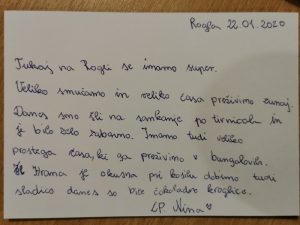 Rogla 22.01.2020
Tukaj na Rogli se imamo super.
Veliko smučamo in veliko časa preživimo zunaj.
Danes smo šli na sankanje po tirnicah in
je bilo zelo zabavno. Imamo tudi veliko
prostega časa, ki ga preživimo v bungalovih.
Hrana je okusna pri kosilu dobimo tudi
sladico danes so bile čokoladne kroglice.
LP Nina